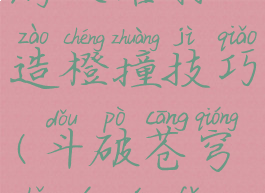 zào chéng zhuàng jì qiǎo
造橙撞技巧
dǒu pò cāng qióng
(斗破苍穹